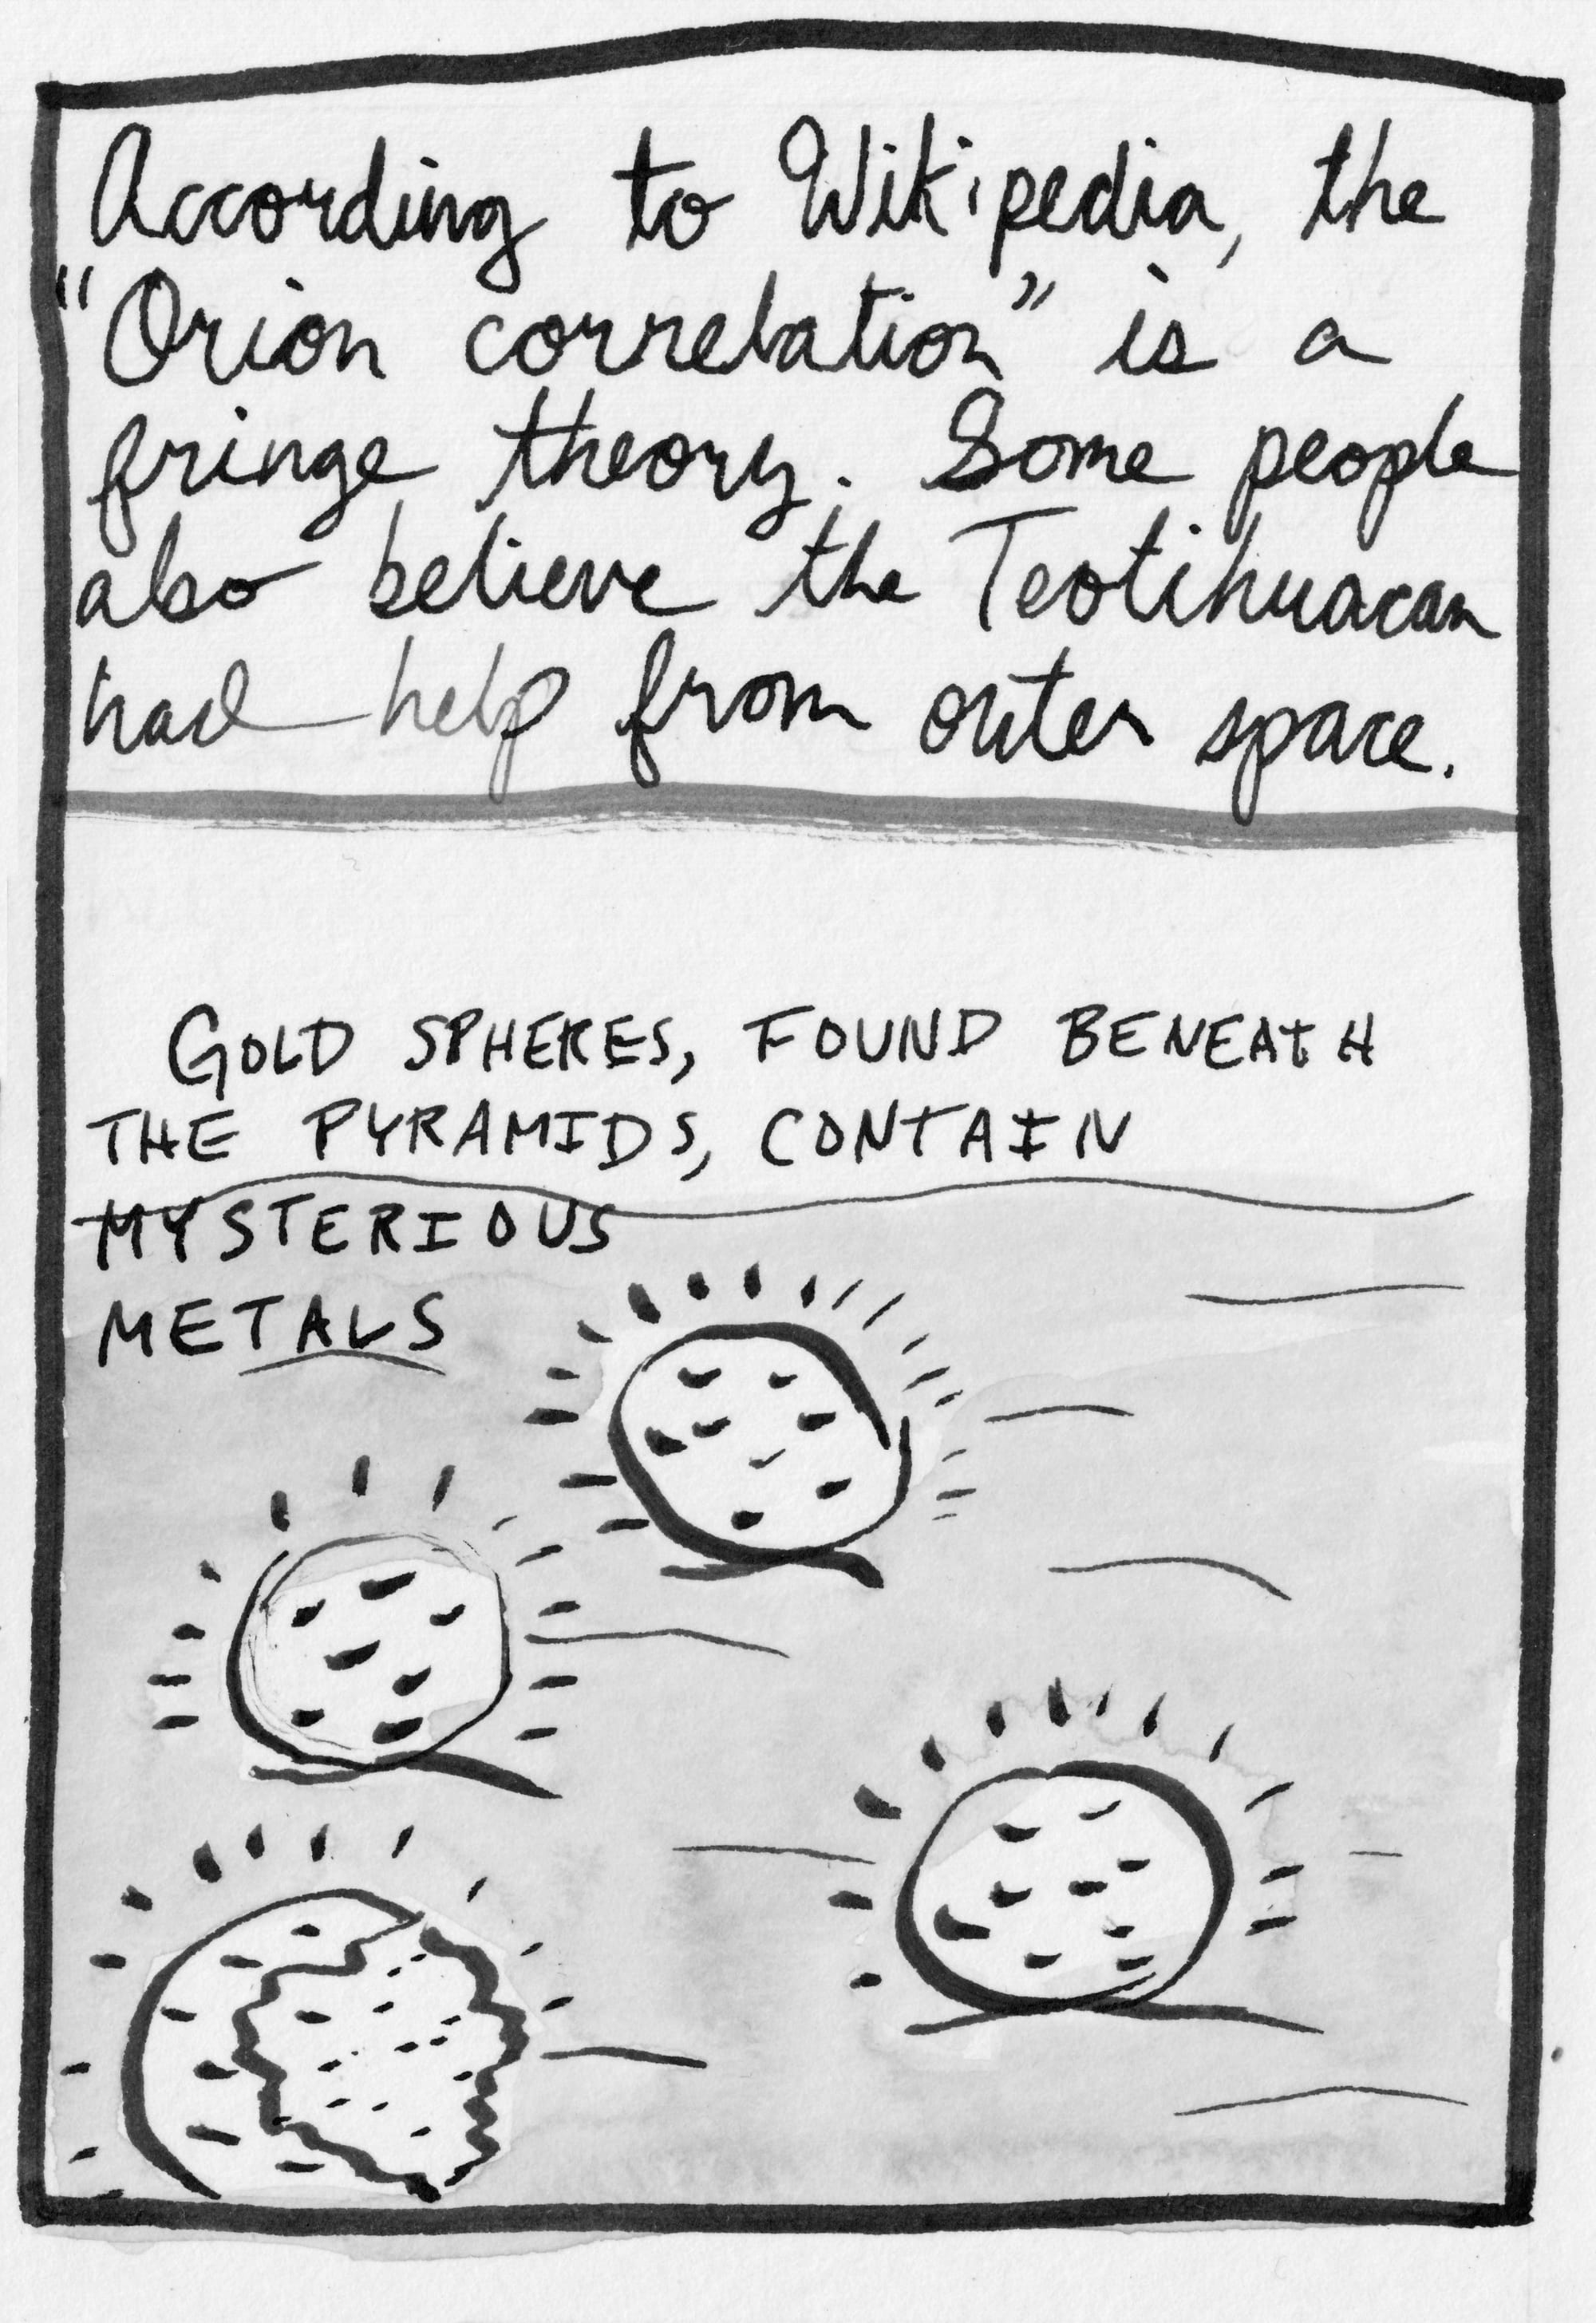 According to Wikipedia, the
"Orion correlation" is a
fringe theory. Some people
also believe the Teotihuacan
had help from outer space.
GOLD SPHERES, FOUND BENEATH
THE PYRAMIDS, CONTAIN
MYSTERIOUS
METALS